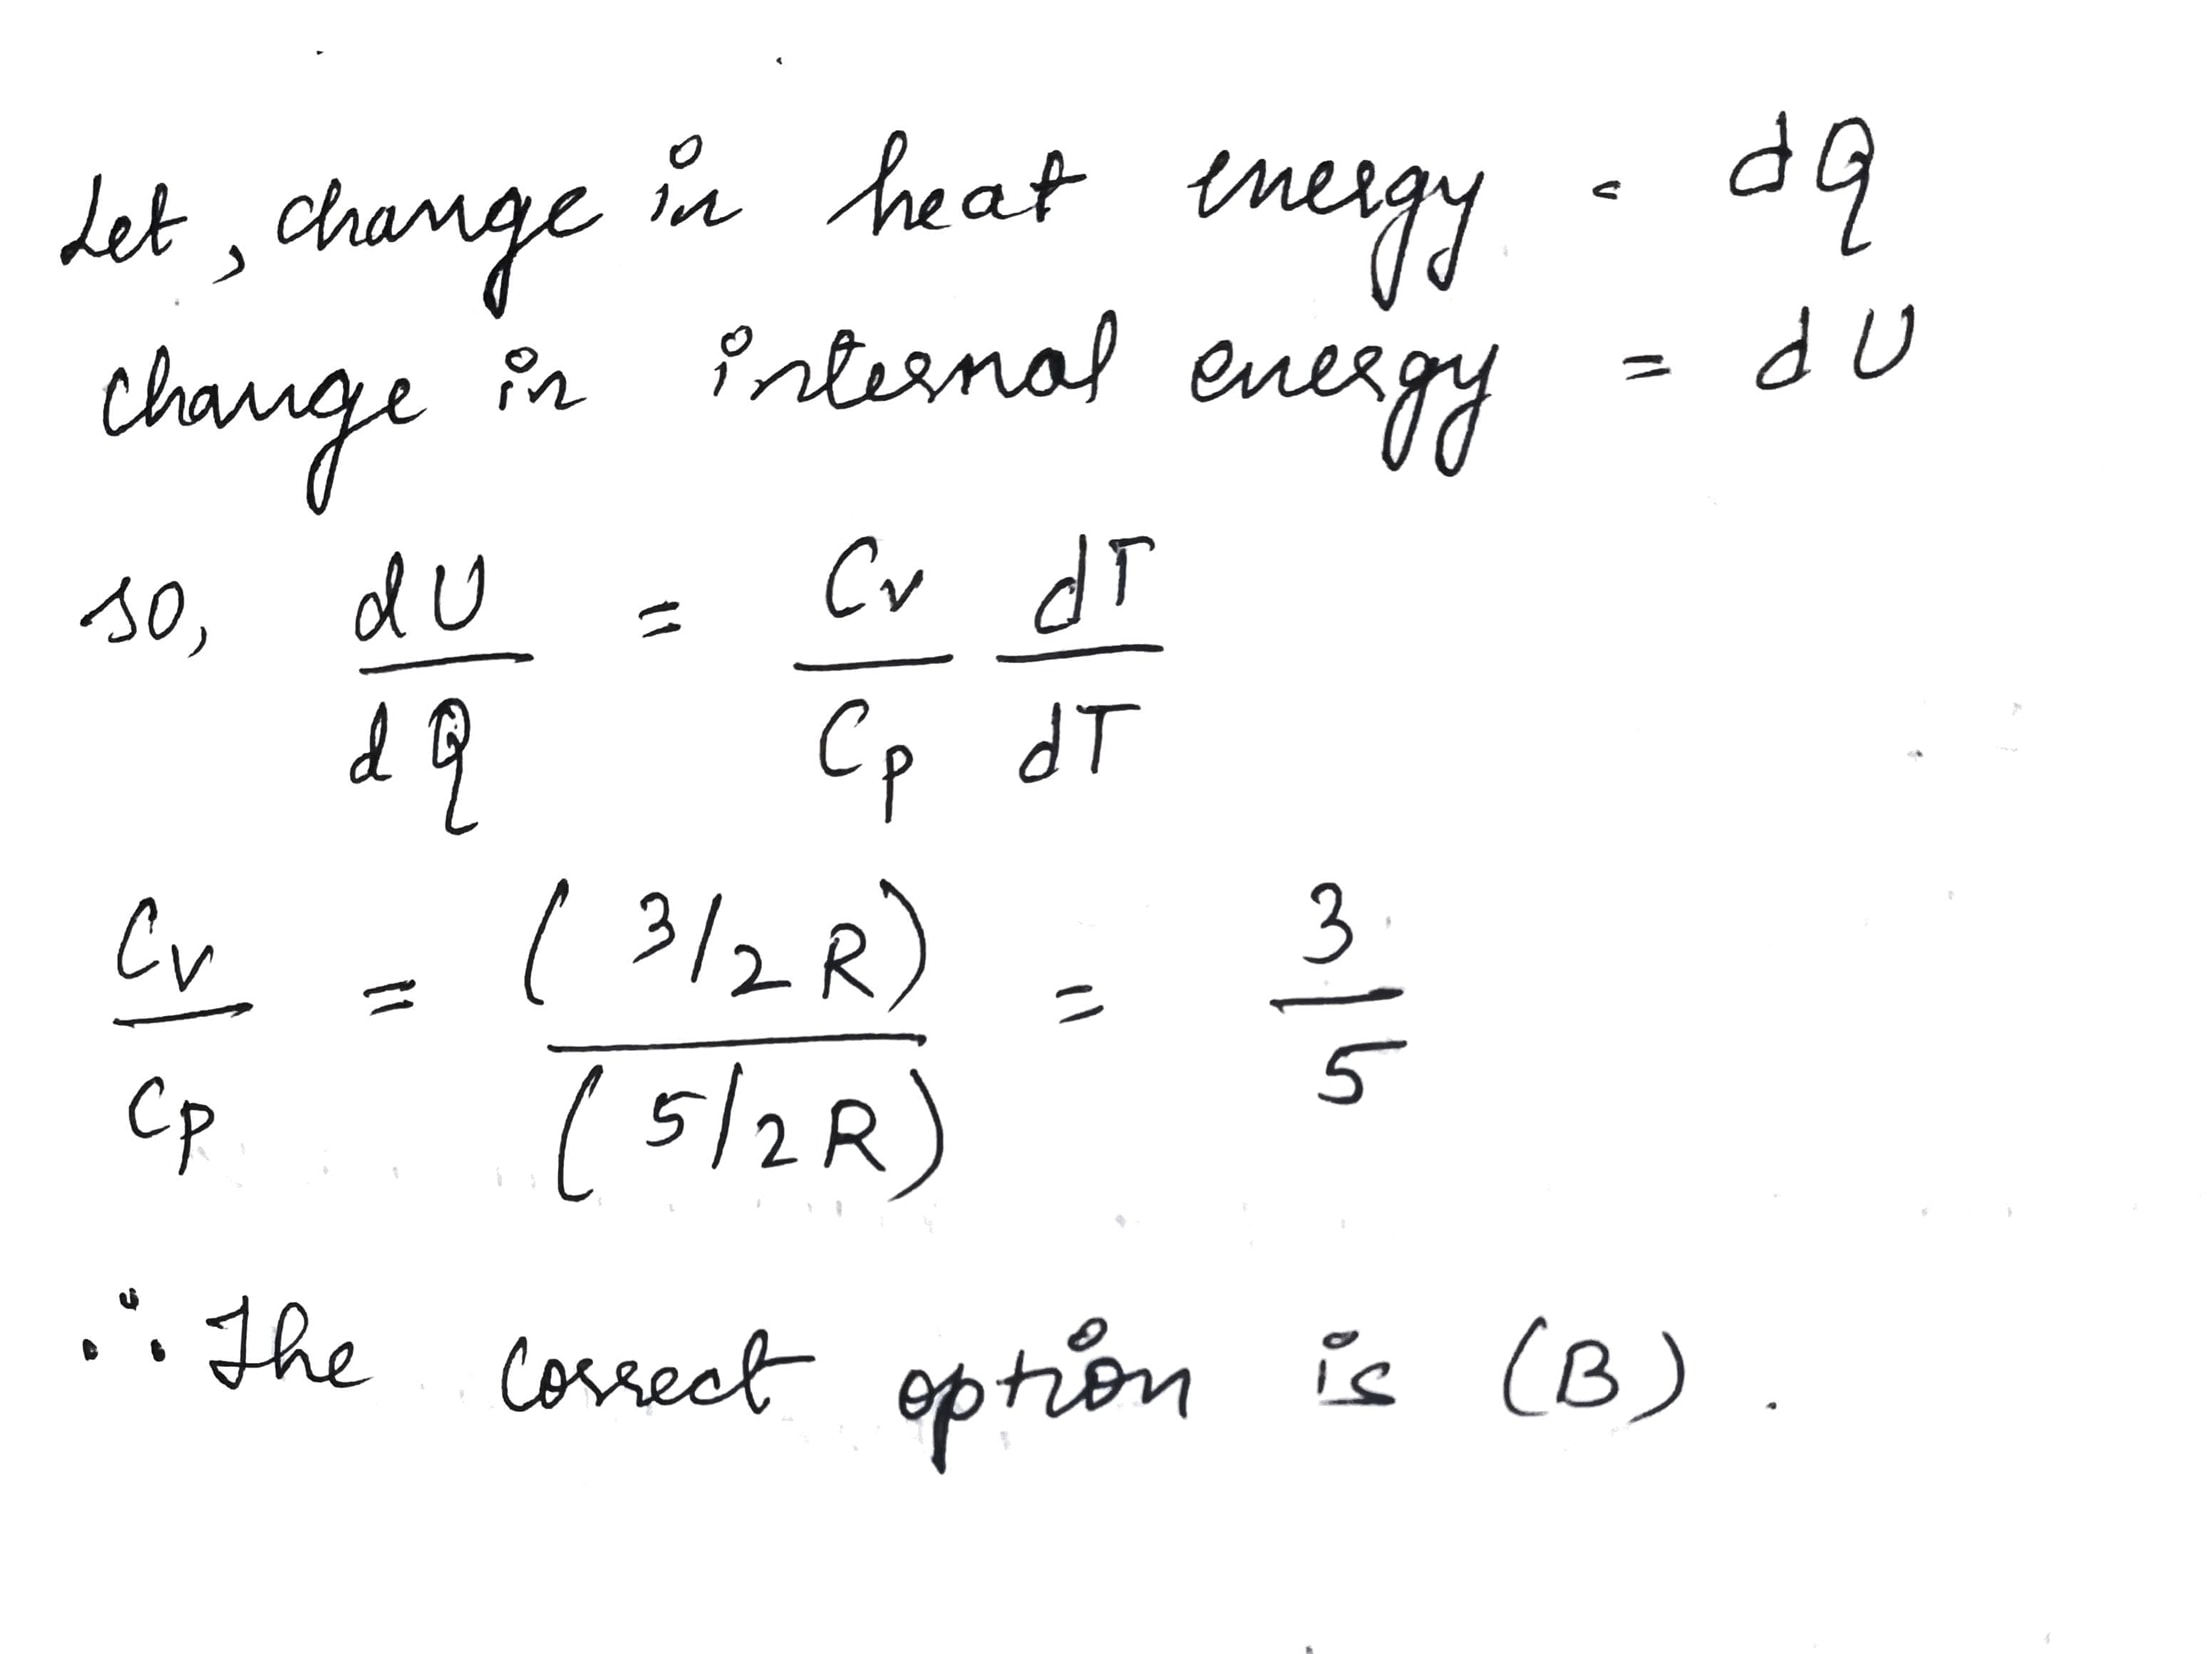 Let, change in heat energy = dQ
change in internal energy = dU
so, dU/dQ = Cv/Cp dT/dT
Cv/Cp = (3/2 R)/(5/2 R) = 3/5
∴ The correct option is (B).